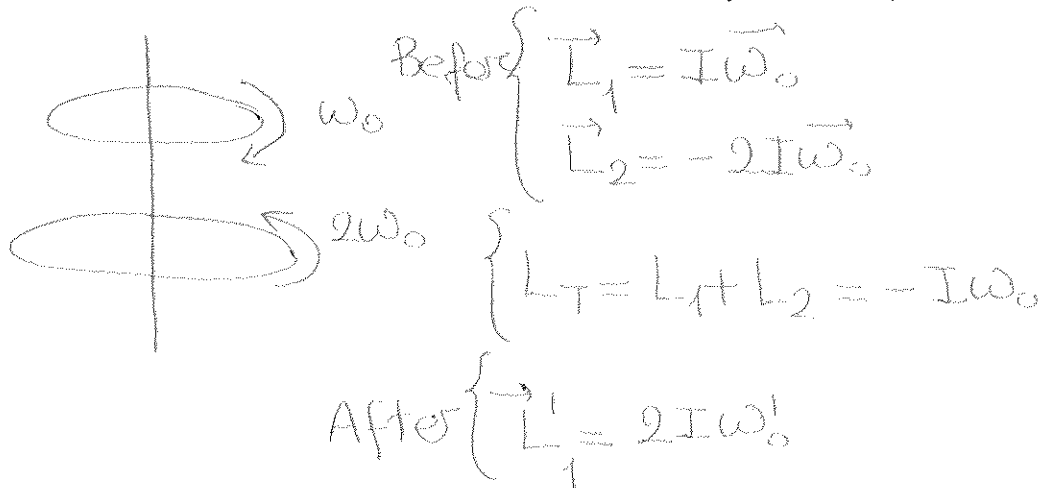 Before { L⃗₁ = Iω⃗₀
ω₀
L⃗₂ = - 2Iω⃗₀
2ω₀
{ L_T = L₁ + L₂ = - Iω₀
After { L⃗'₁ = 2Iω'₀